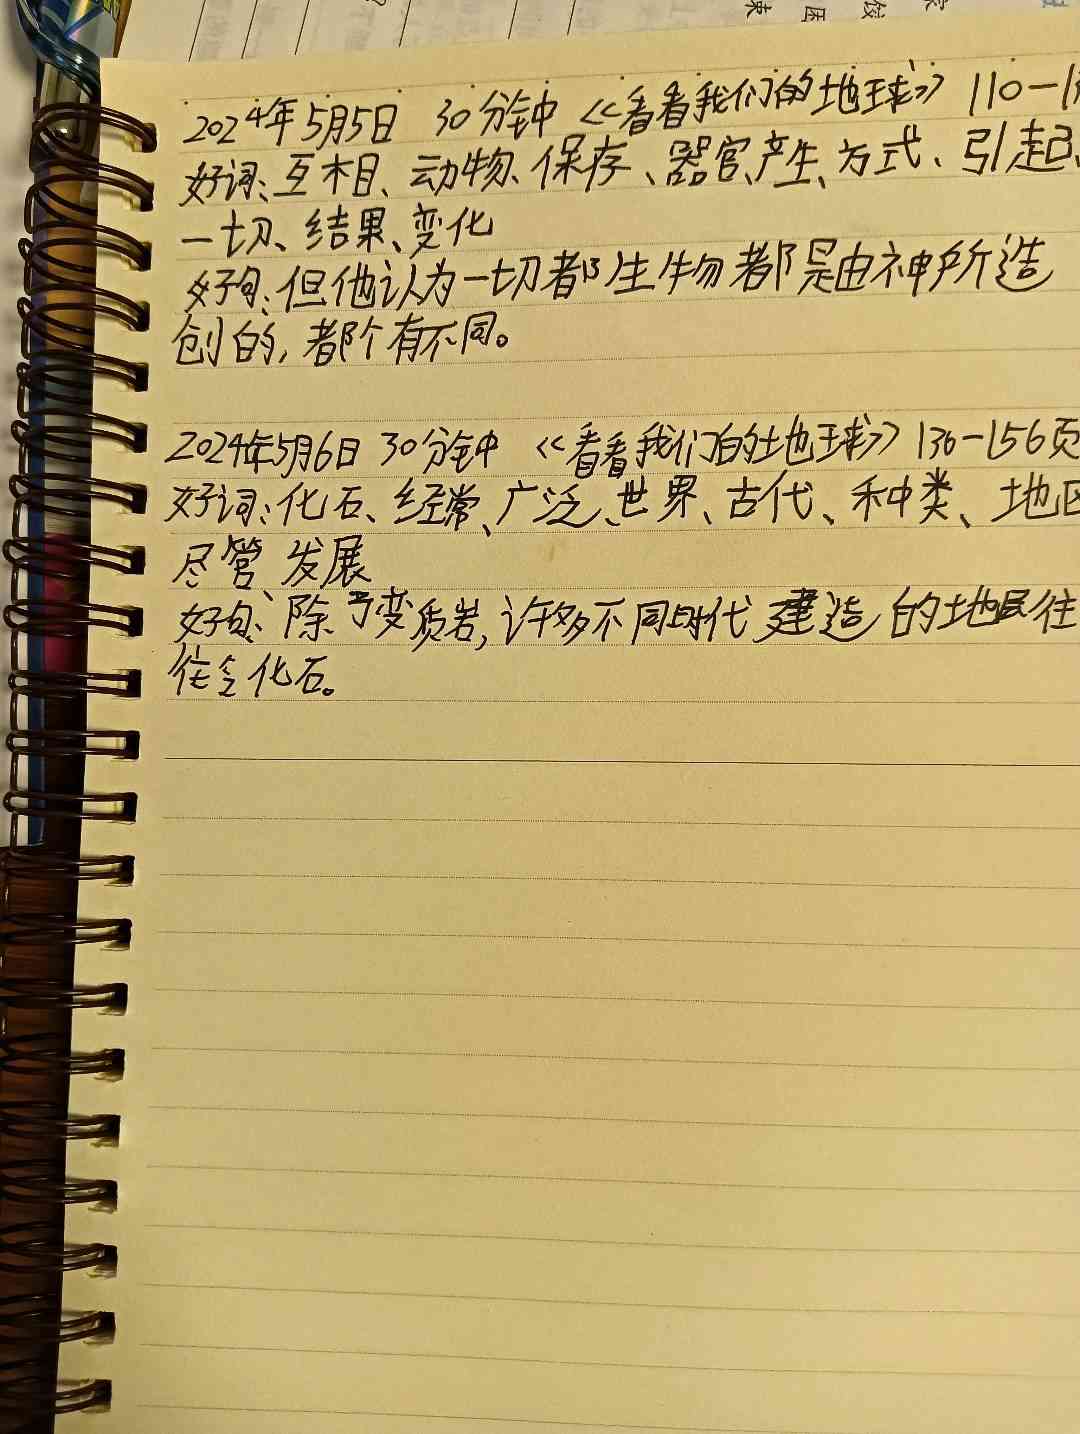 2024年5月5日 30分钟《看看我们的地球》110-1
好词:互相、动物、保存、器官、产生、方式、引起、
一切、结果、变化
好句:但他认为一切都生物都是由神所造
创的,都个有不同。
2024年5月6日 30分钟《看看我们的地球》136-156页
好词:化石、经常、广泛、世界、古代、种类、地区
尽管、发展
好句:除了变质岩,许多不同时代建造的地层往
往含化石。